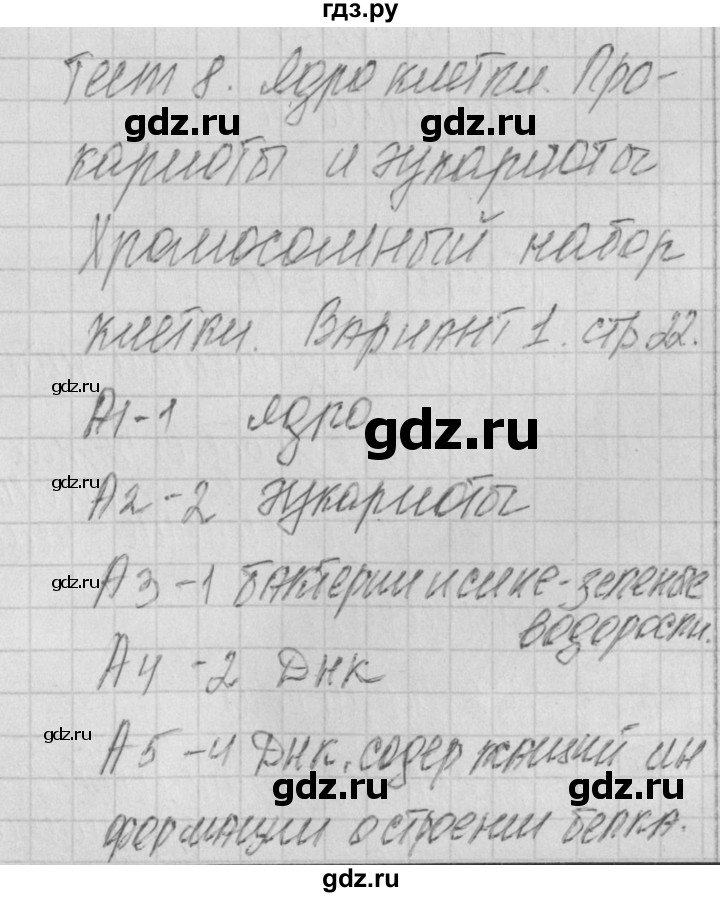 гдз.ру
Тест 8. Ядро клетки. Про-
кариоты и эукариоты
Хромосомный набор
клетки. Вариант 1. стр 22.
А1-1 ядро
А2-2 эукариоты
А3-1 бактерии и сине-зеленые
водоросли.
А4-2 ДНК
А5-4 ДНК, содержащий ин
формации о строении белка.
gdz.ru
gdz.ru
gdz.ru
gdz.ru
gdz.ru
gdz.ru
gdz.ru
gdz.ru
gdz.ru
gdz.ru
gdz.ru